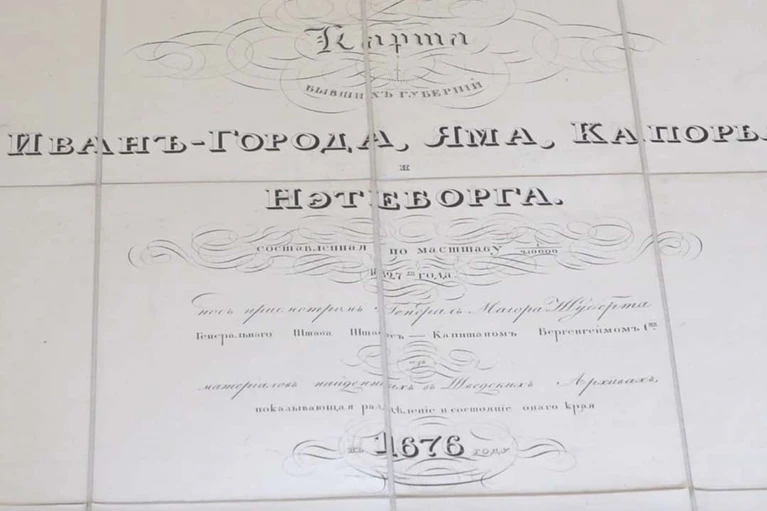 Карта
БЫВШИХЪ ГУБЕРНІЙ
ИВАНЪ-ГОРОДА, ЯМА, КАПОРЬ
и
НЭТЕБОРГА.
составленная по масштабу 1/210000
1827го года.
подъ присмотромъ Генералъ Маіора Шуберта
Генеральнаго Штаба Штабсъ — Капитаномъ Бергенгеймомъ 1мъ
изъ
матеріаловъ найденныхъ въ Шведскихъ Архивахъ,
показывающая раздѣленіе и состояніе онаго края
въ 1676 году